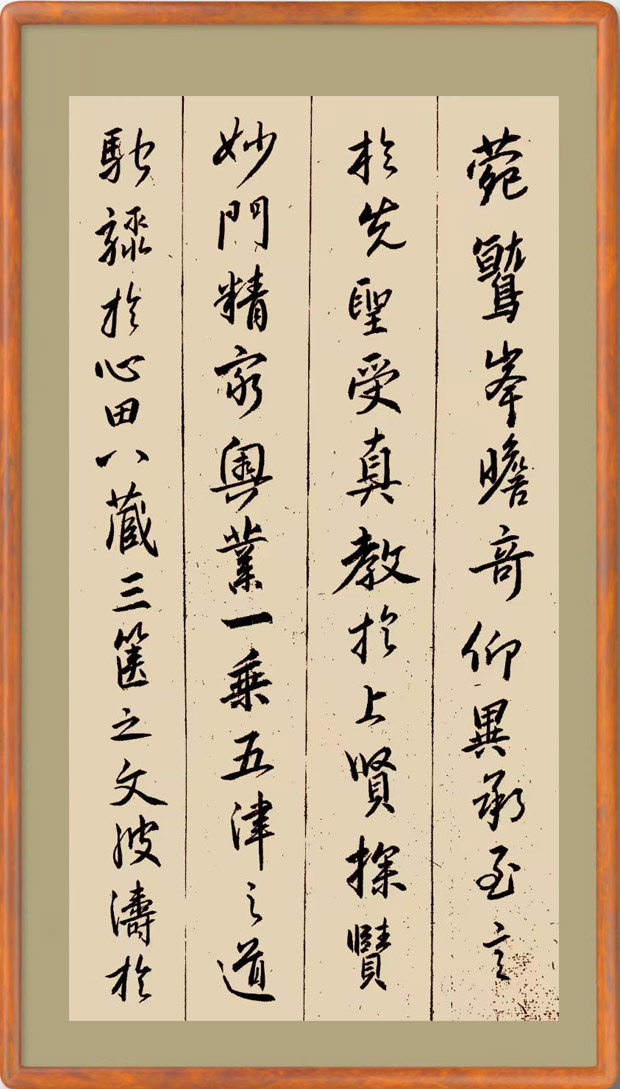 菀鷲峯瞻奇仰異承至言
於先聖受真教於上賢探賾
妙門精窮奧業一乘五津之道
馳驟於心田八藏三篋之文波濤於